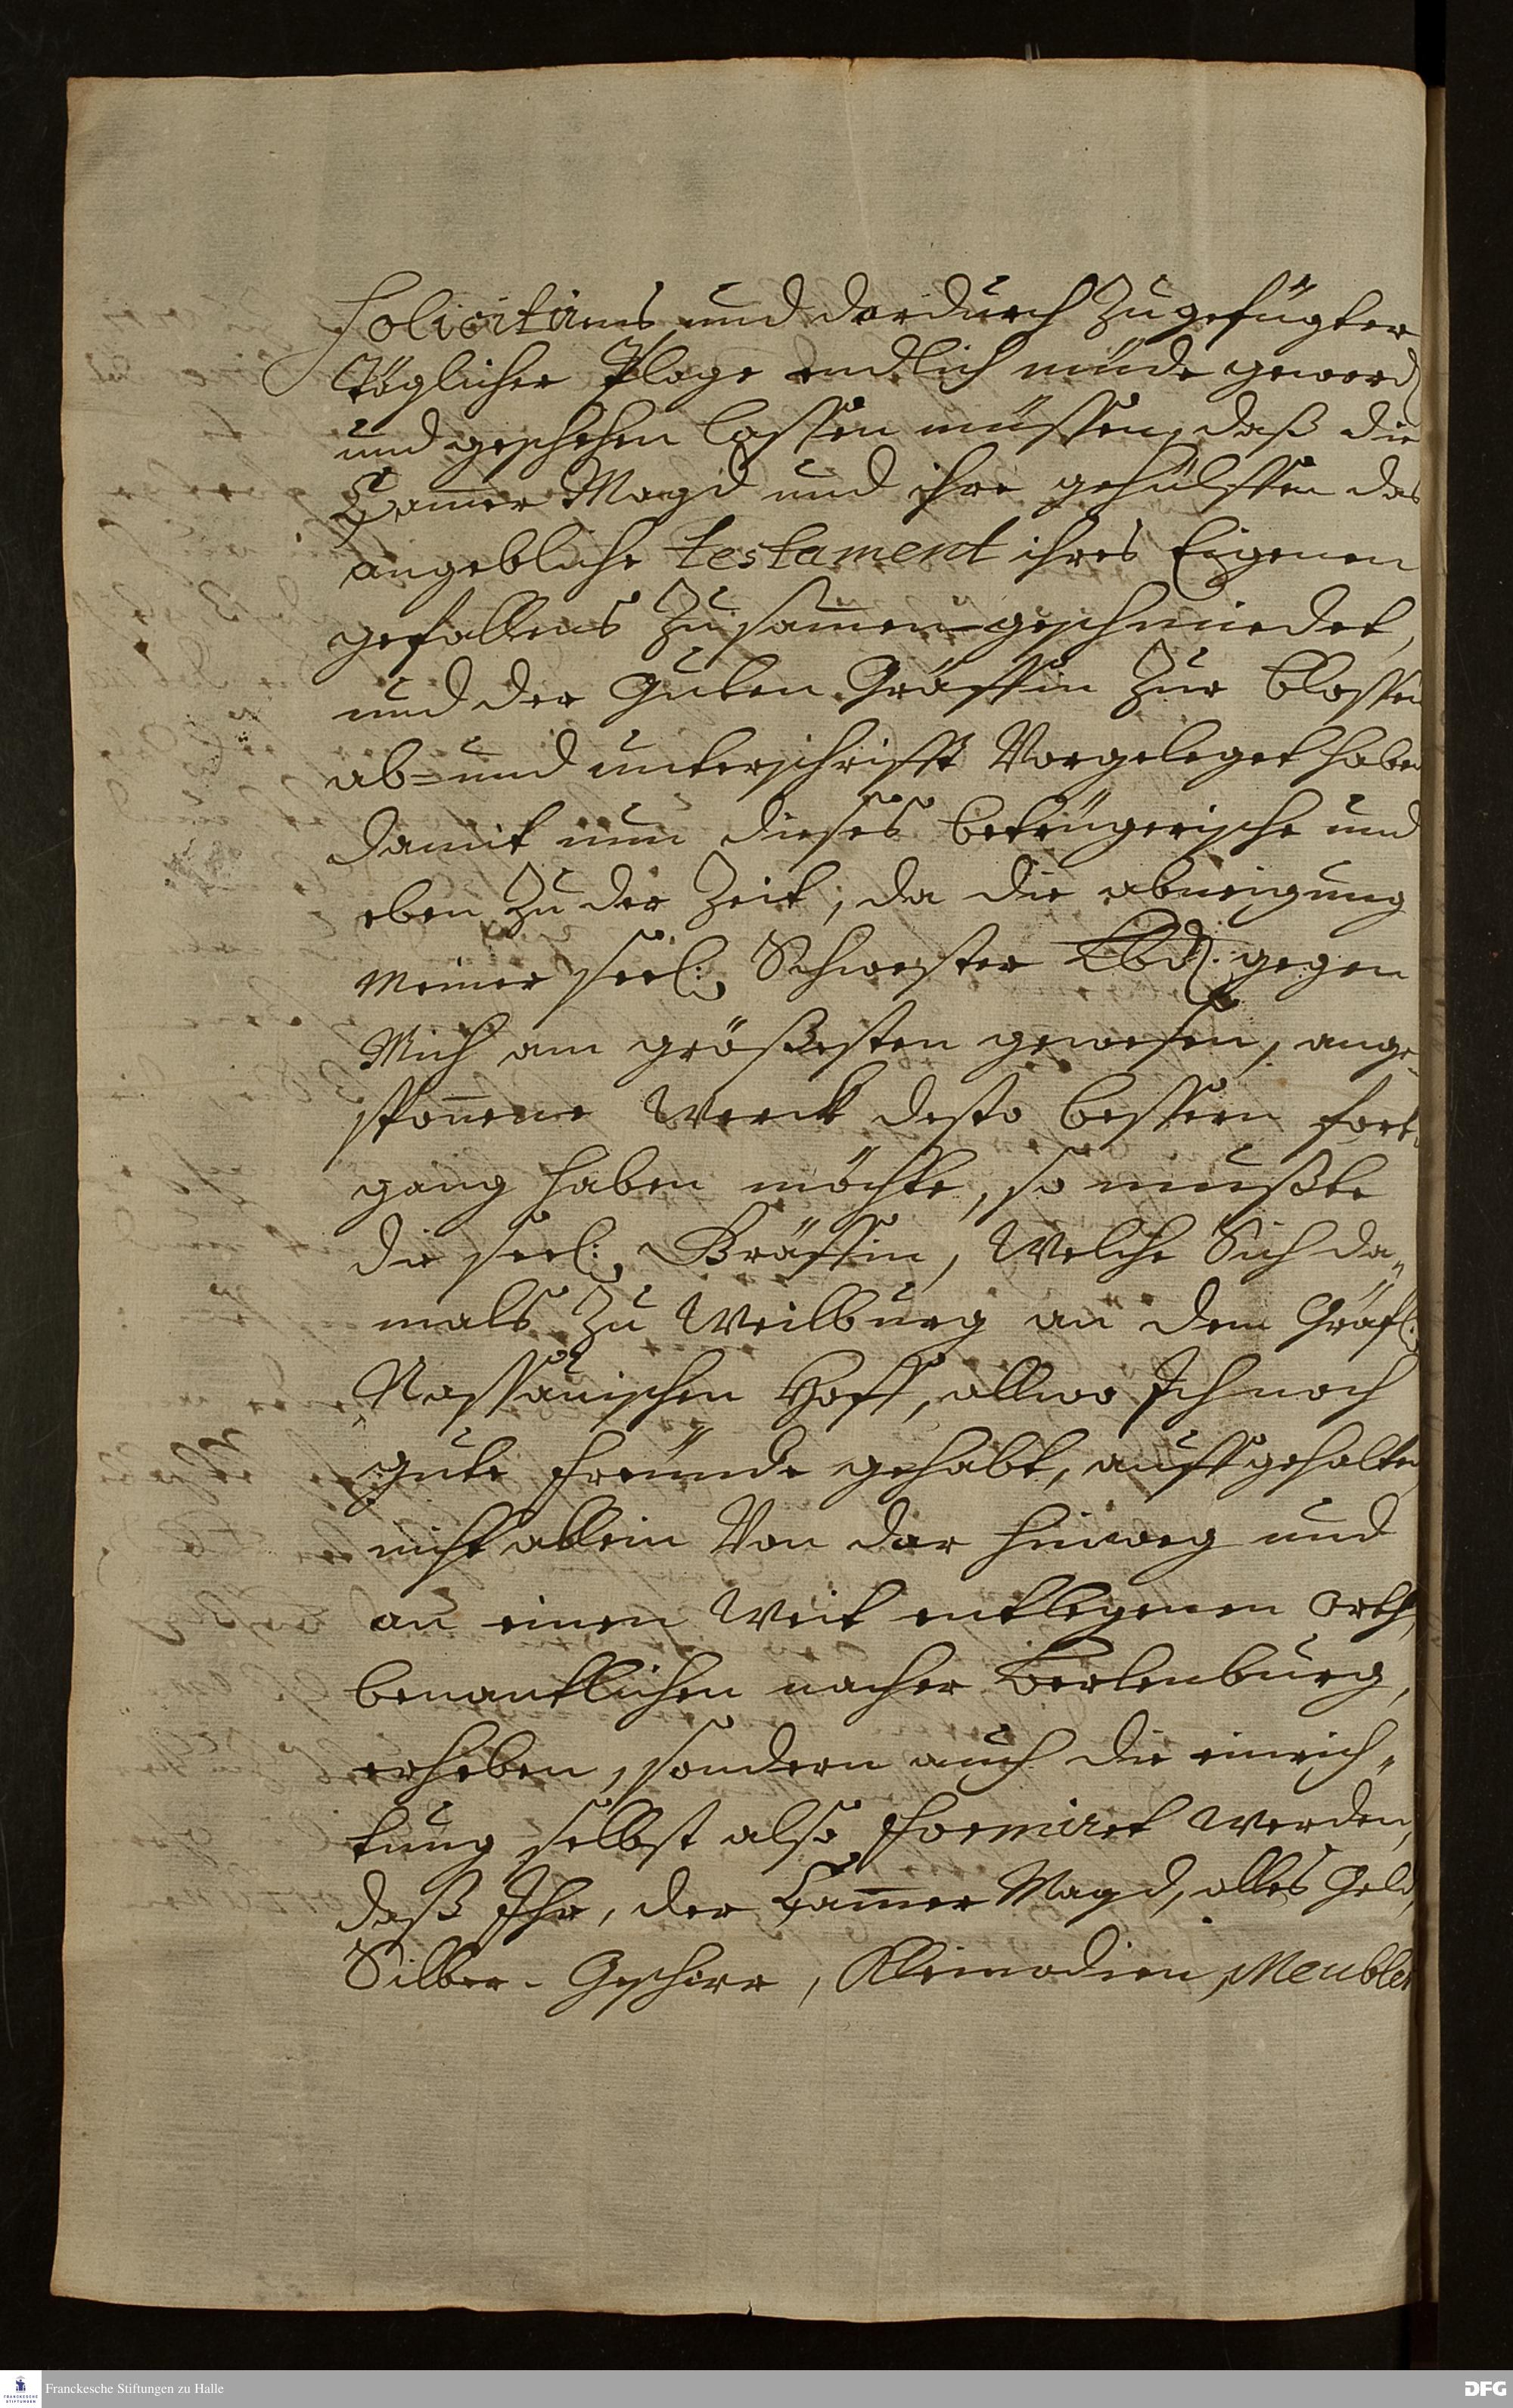 solicitirens und dardurch Zugefügter
täglicher Plage endlich müde geword
und geschehen lassen müssen, daß die
Cam̄er Magd und ihre gehülffen das
angebliche testament ihres Eigenen
gefallens Zusam̄en-geschmiedet,
und der Guten Gräffin Zur blossen
ab- und unterschrifft Vorgeleget haben
damit nun dieses betrügerische und
eben Zu der Zeit, da die abneigung
meiner seel: Schwester Lbd. gegen
Mich am größesten gewesen, ange-
spon̄ene Werck desto bessern fort-
gang haben möchte, so mußte
die seel: Gräffin, Welche Sich da-
mals Zu Weilburg an dem Gräfl:
Nassauischen Hoff, allwo Ich noch
gute freunde gehabt, auffgehalten
nicht allein Von dar hinweg und
an einen Weit entlegenen Orth,
benantlichen nacher Berlenburg,
erheben, sondern auch die einrich-
tung selbst also formiret werden,
daß Ihr, der Cam̄er Magd, alles Geld,
Silber-Geschirr, Kleinodien, Meublen
Franckesche Stiftungen zu Halle
DFG